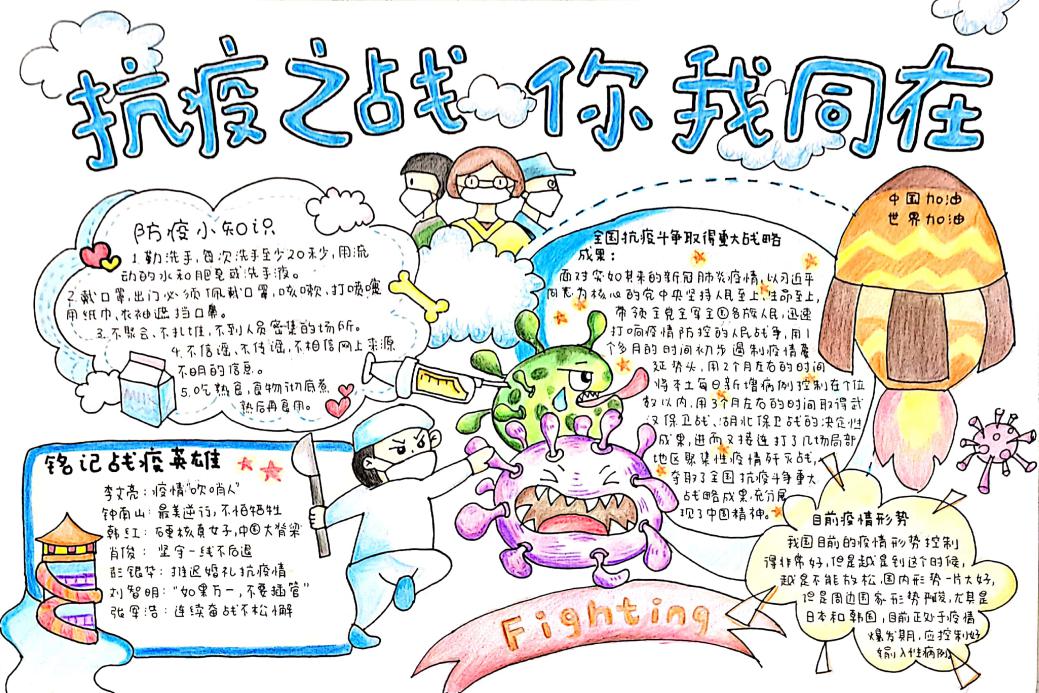 抗疫之战 你我同在
防疫小知识
1.勤洗手,每次洗手至少20秒,用流
动的水和肥皂或洗手液。
2.戴口罩,出门必须佩戴口罩,咳嗽、打喷嚏
用纸巾、衣袖遮挡口鼻。
3.不聚会、不扎堆,不到人员密集的场所。
4.不信谣、不传谣,不相信网上来源
不明的信息。
5.吃热食,食物彻底煮
熟后再食用。
MILK
铭记战疫英雄
李文亮:疫情“吹哨人”
钟南山:最美逆行,不怕牺牲
韩红:硬核真女子,中国大脊梁
肖俊:坚守一线不后退
彭银华:推迟婚礼抗疫情
刘智明:“如果万一,不要插管”
张军浩:连续奋战不松懈
全国抗疫斗争取得重大战略
成果:
面对突如其来的新冠肺炎疫情,以习近平
同志为核心的党中央坚持人民至上、生命至上,
带领全党全军全国各族人民,迅速
打响疫情防控的人民战争,用1
个多月的时间初步遏制疫情蔓
延势头,用2个月左右的时间
将本土每日新增病例控制在个位
数以内,用3个月左右的时间取得武
汉保卫战、湖北保卫战的决定性
成果,进而又接连打了几场局部
地区聚集性疫情歼灭战,
夺取了全国抗疫斗争重大
战略成果,充分展
现了中国精神。
中国加油
世界加油
目前疫情形势
我国目前的疫情形势控制
得非常好,但是越是到这个时候,
越是不能放松,国内形势一片大好,
但是周边国家形势严峻,尤其是
日本和韩国,目前正处于疫情
爆发期,应控制好
输入性病例。
Fighting